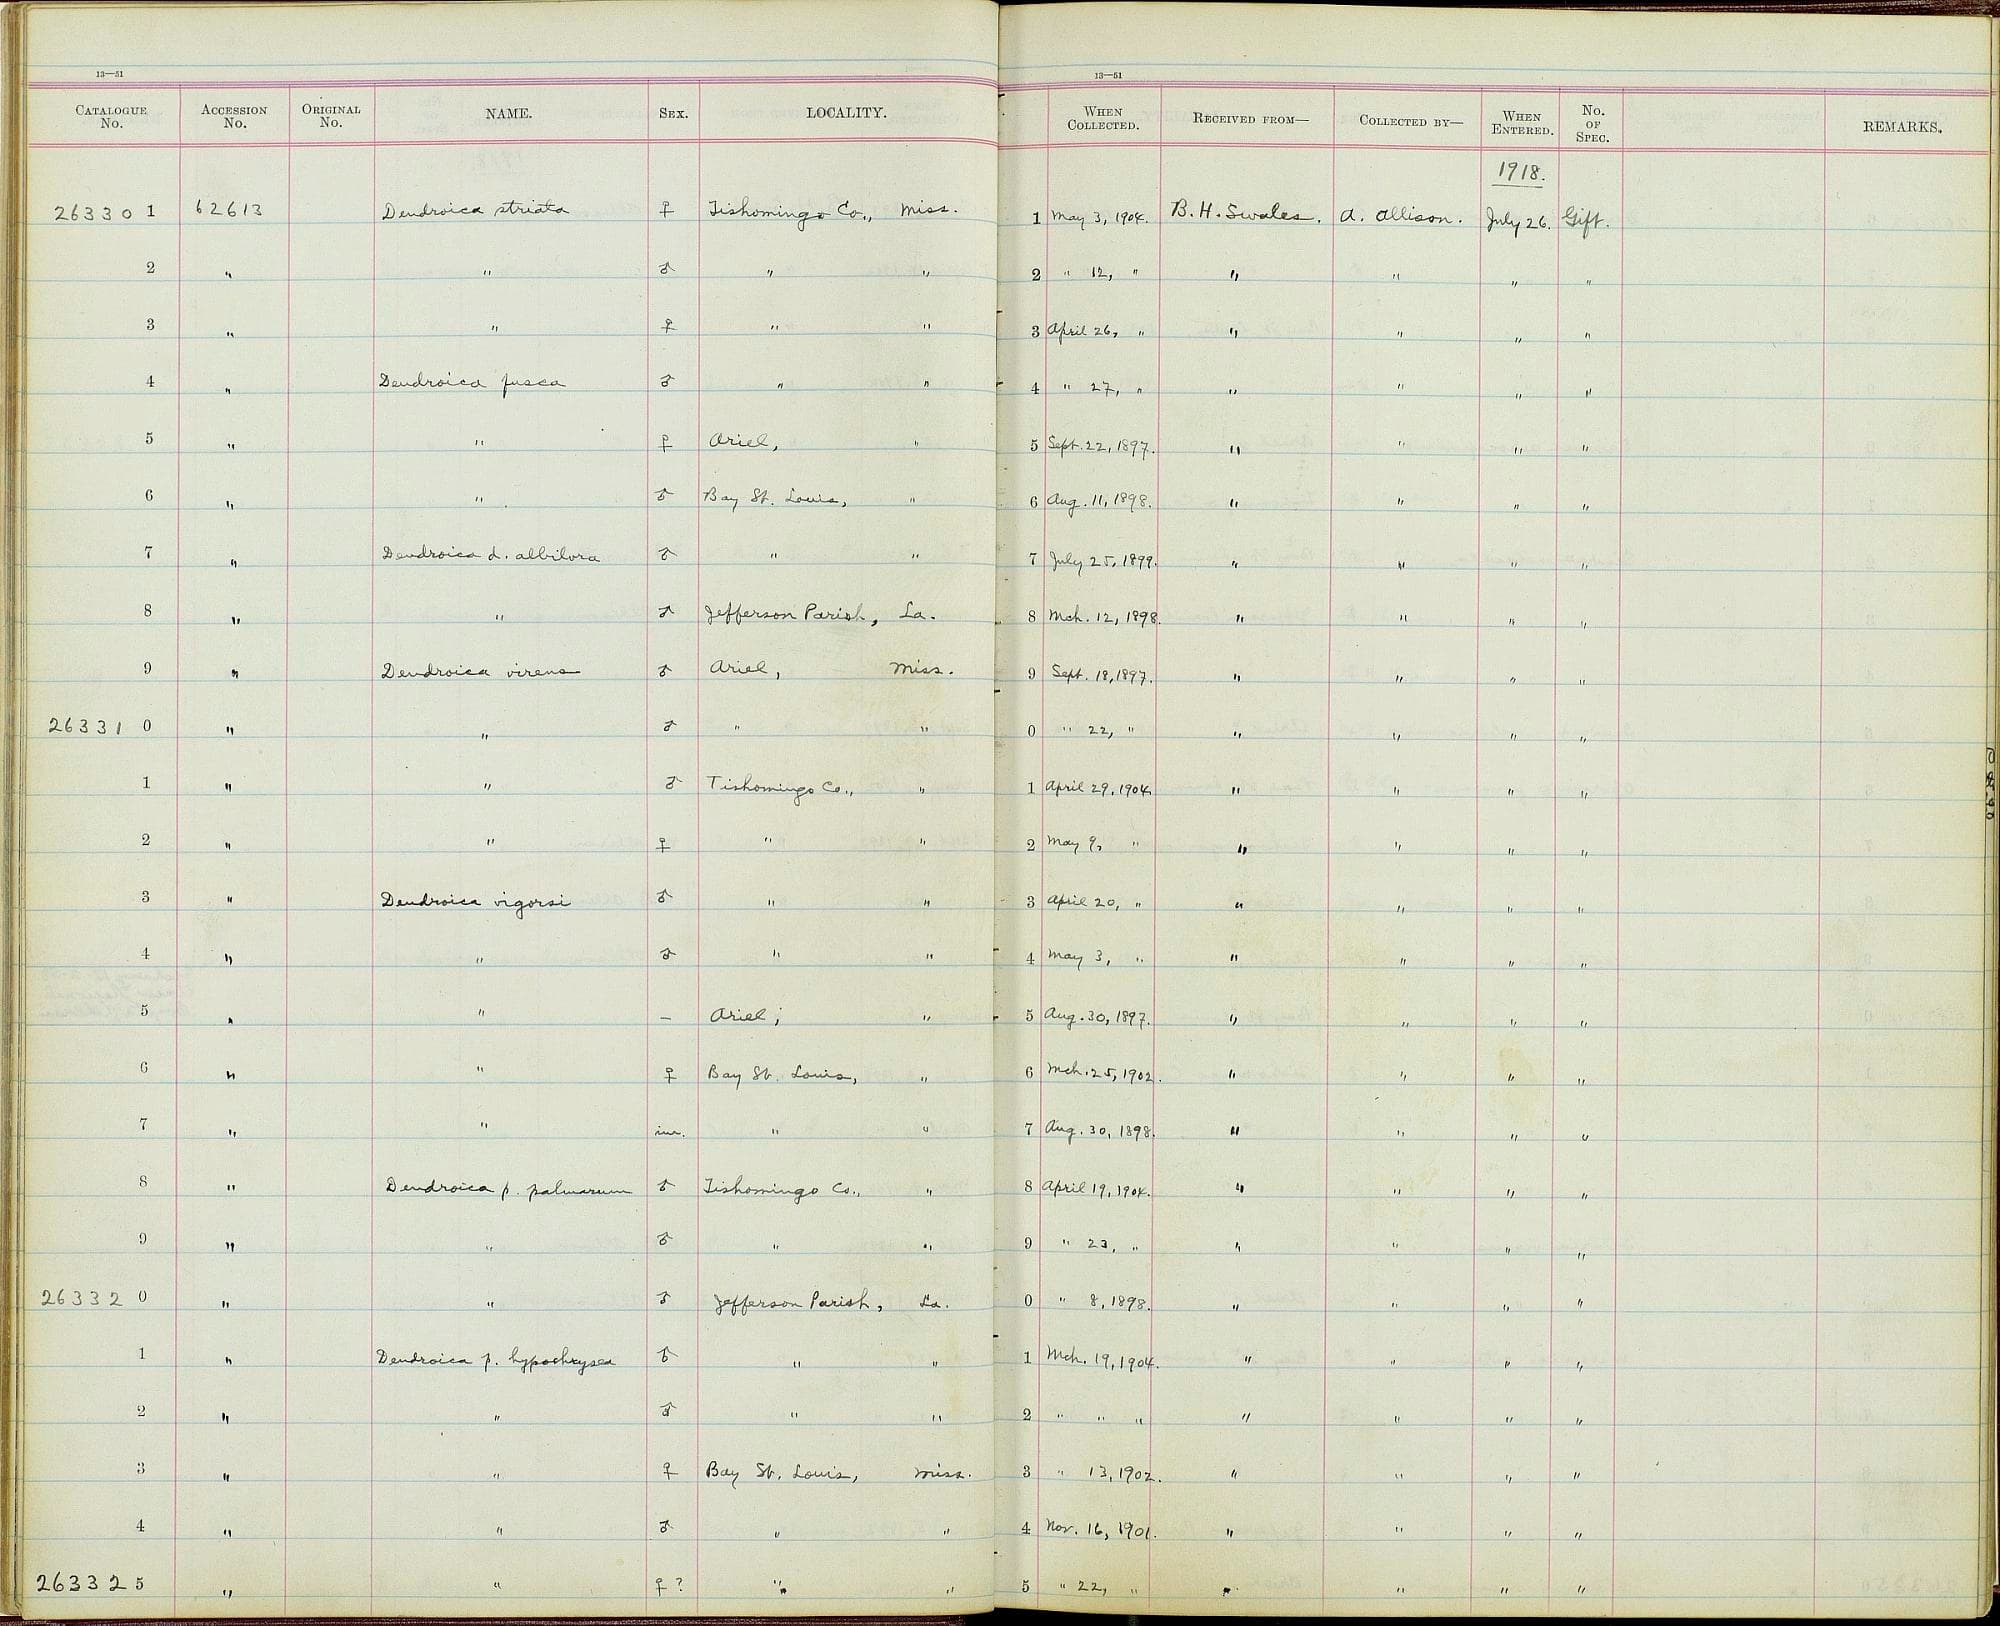 13—51
CATALOGUE No. ACCESSION No. ORIGINAL No. NAME. SEX. LOCALITY.
26330 1 62613 Dendroica striata ♀ Tishomingo Co., Miss.
2 " " ♂ " "
3 " " ♀ " "
4 " Dendroica fusca ♂ " "
5 " " ♀ Ariel, "
6 " " ♂ Bay St. Louis, "
7 " Dendroica d. albilora ♂ " "
8 " " ♂ Jefferson Parish, La.
9 " Dendroica virens ♂ Ariel, Miss.
26331 0 " " ♂ " "
1 " " ♂ Tishomingo Co., "
2 " " ♀ " "
3 " Dendroica vigorsi ♂ " "
4 " " ♂ " "
5 " " — Ariel, "
6 " " ♀ Bay St. Louis, "
7 " " im. " "
8 " Dendroica p. palmarum ♂ Tishomingo Co., "
9 " " ♂ " "
26332 0 " " ♂ Jefferson Parish, La.
1 " Dendroica p. hypochrysea ♂ " "
2 " " ♂ " "
3 " " ♀ Bay St. Louis, Miss.
4 " " ♂ " "
26332 5 " " ♀? " "
13—51
WHEN COLLECTED. RECEIVED FROM— COLLECTED BY— WHEN ENTERED. No. OF SPEC. REMARKS.
1918.
1 May 3, 1904. B. H. Swales. A. Allison. July 26. Gift.
2 " 12, " " " " "
3 April 26, " " " " "
4 " 27, " " " " "
5 Sept. 22, 1897. " " " "
6 Aug. 11, 1898. " " " "
7 July 25, 1899. " " " "
8 Mch. 12, 1898. " " " "
9 Sept. 18, 1897. " " " "
0 " 22, " " " " "
1 April 29, 1904. " " " "
2 May 9, " " " " "
3 April 20, " " " " "
4 May 3, " " " " "
5 Aug. 30, 1897. " " " "
6 Mch. 25, 1902. " " " "
7 Aug. 30, 1898. " " " "
8 April 19, 1904. " " " "
9 " 23, " " " " "
0 " 8, 1898. " " " "
1 Mch. 19, 1904. " " " "
2 " " " " " " "
3 " 13, 1902. " " " "
4 Nov. 16, 1901. " " " "
5 " 22, " " " " "